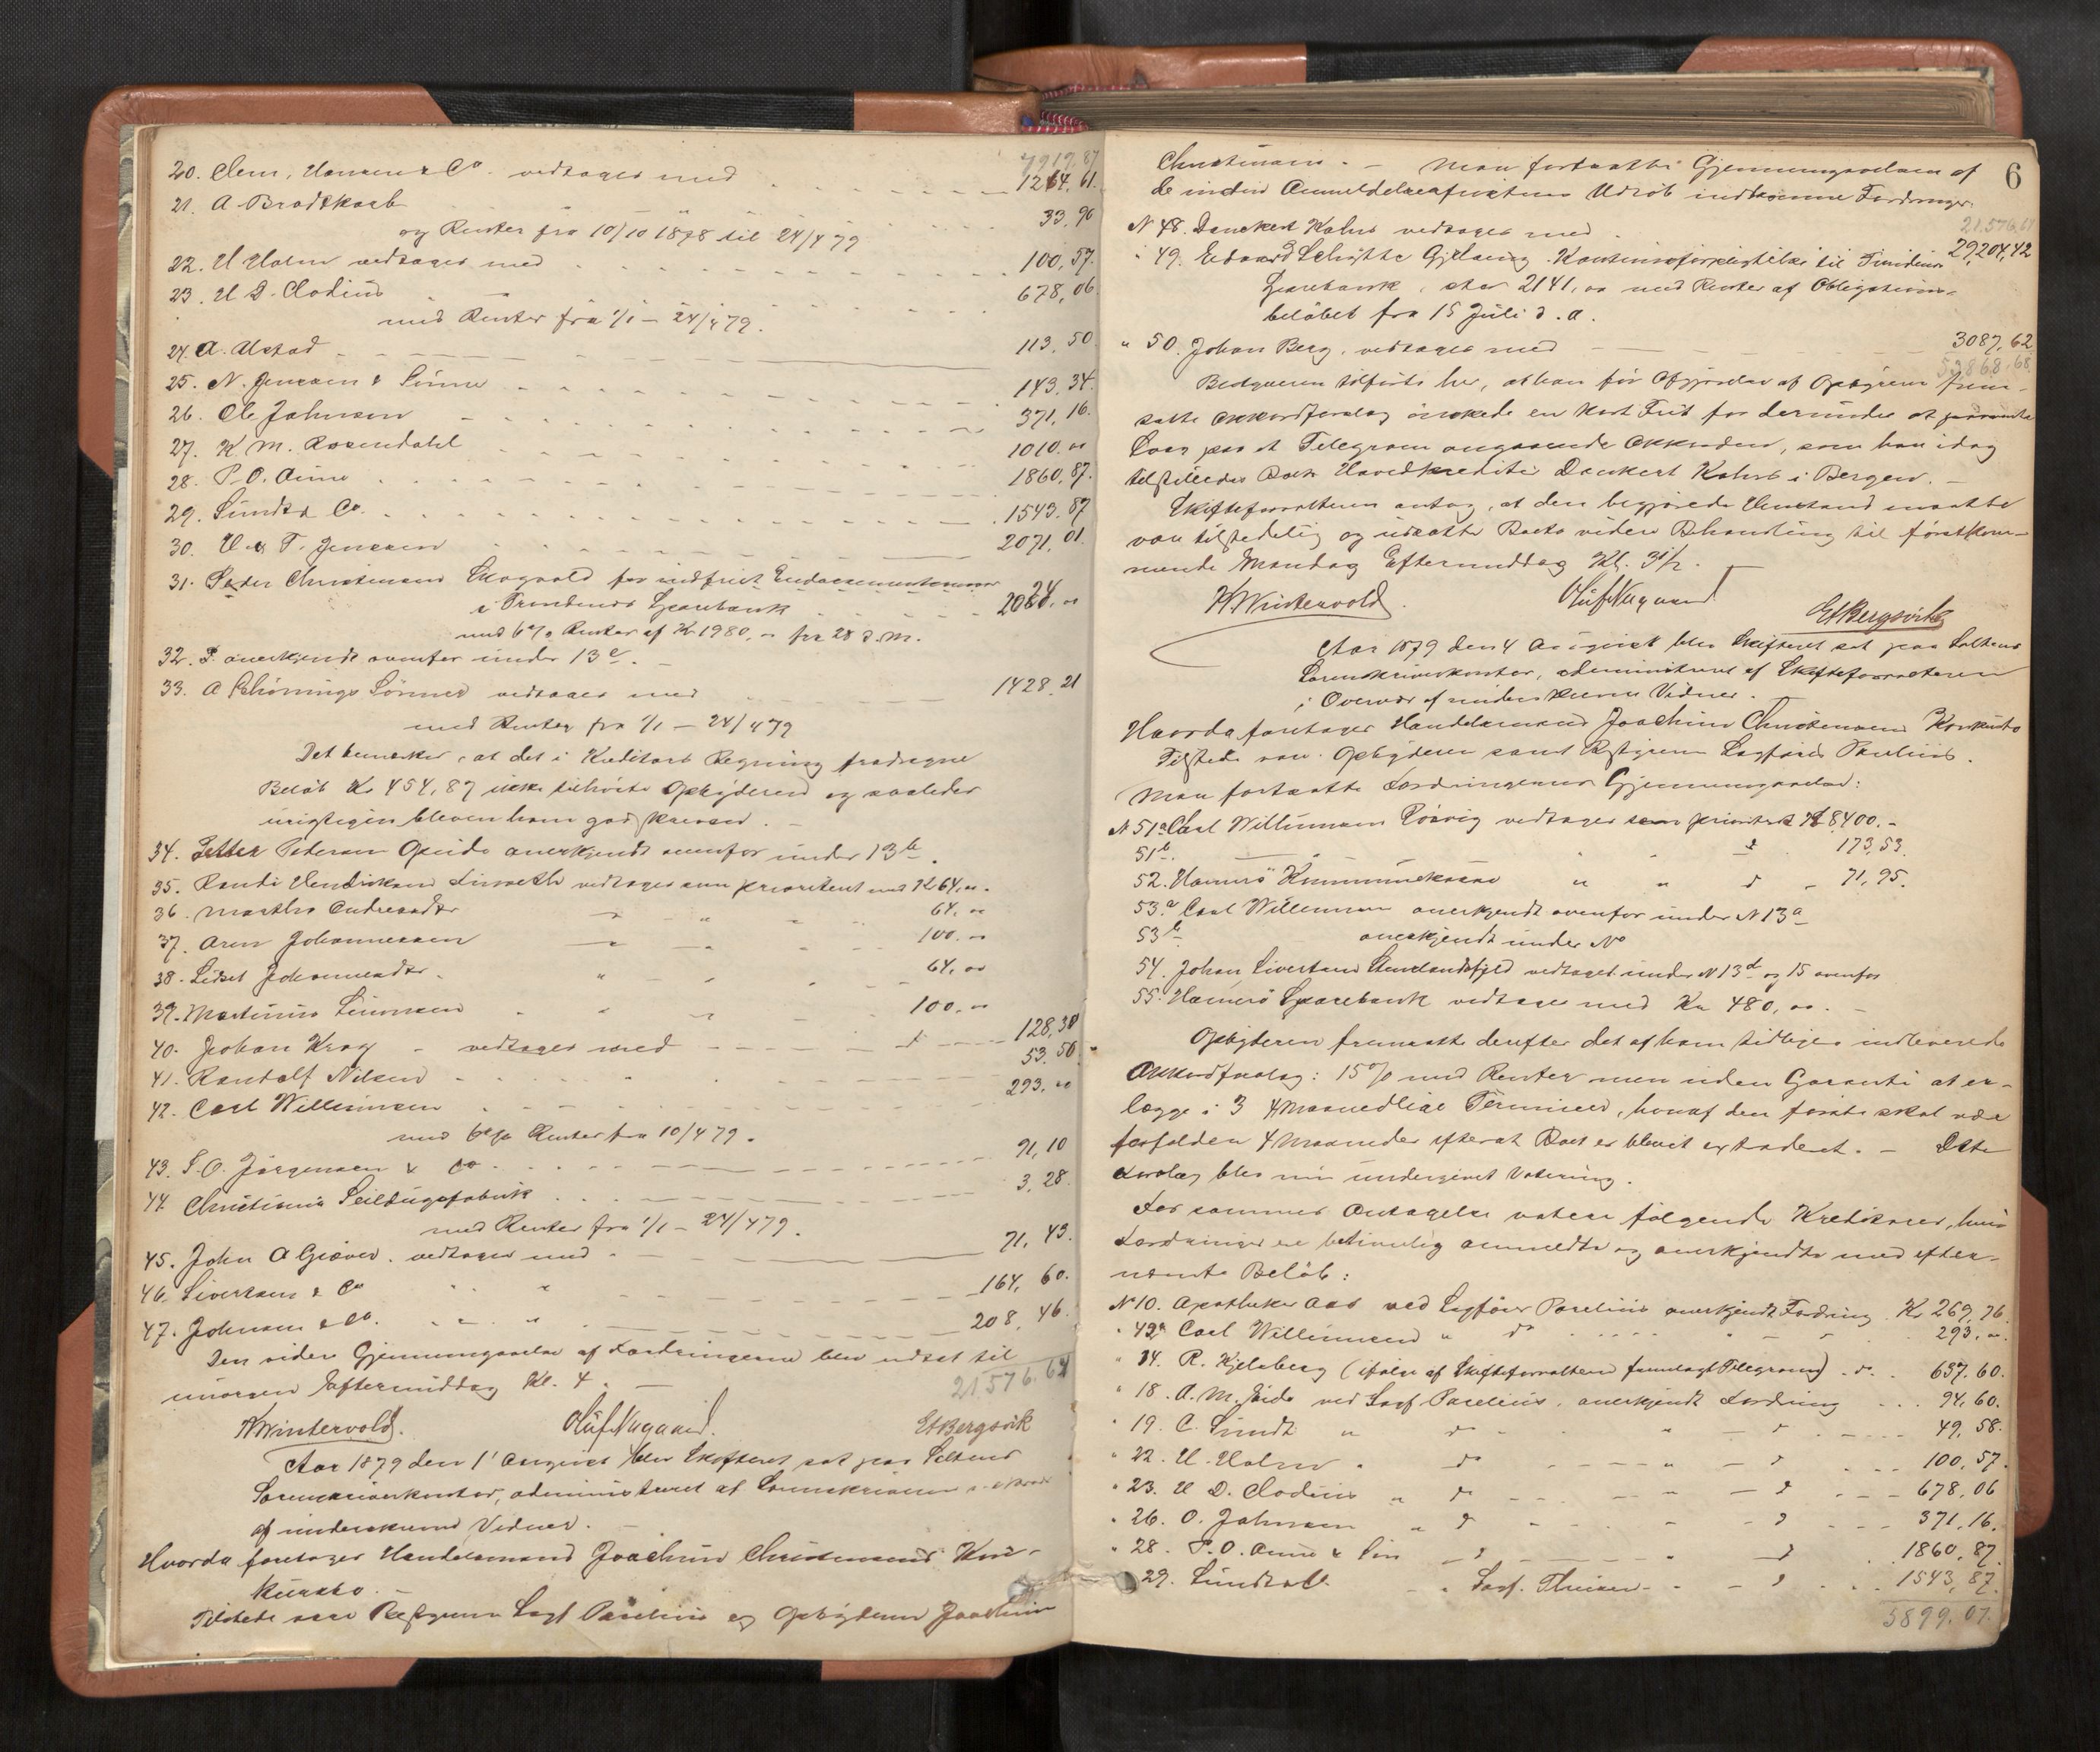 7919.87
20. Clem. Hansen & Co. vedtages med 1264,61.
21. A Brodtkorb 33,90
og Renter fra 10/10 1878 til 24/4 79
22. H Holm vedtages med 100,57.
23. H D. Clodius 678,06
med Renter fra 1/1 – 24/4 79.
24. A. Ulstad 113,50
25. N. Jensen & Sønne 143,34.
26. Ole Johnsen 371,16.
27. K M. Rosendahl 1010.00
28. P. O. Aune 1860,87.
29. Sundt & Co. 1543.87
30. H & T. Jenssen 2071,01.
31. Peder Christensens Skogvold for indfriet Endossementansvar
i Trondhjems Sparebank 2024,00
med 6% Renter af Kr 1980,– fra 28 d.M.
32. anerkjendt ovenfor under 13 c. –
33. A Schönings Sönner vedtages med 1428.21
med Renter fra 1/1 – 24/4 79
Det bemærkes, at det i Kreditors Regning fradragne
Beløb Kr 454,87 ikke tilhørte Opbyderen og saaledes
urigtigen bleven ham godskreven. –
34. Petter Pedersen Opeide anerkjendt ovenfor under 13 b.
35. Randi Hendriksen vedtages som prioriteret med Kr 64,00.
36. Martha Andreasdtr 64,00
37. Aren Johannessen 100.00
38. Lidset Johannesdtr. 64,00
39. Martinus Simonsen 100,00
40. Johan Krog – vedtages med 128,30
41. Randolf Nilsen 53.50
42. Carl Willumsen 293.00
med 6% Renter fra 10/4 79.
43. S. O. Jørgensen & Co. 91,10
44. Christiania Seildugsfabrik 3,28.
med Renter fra 1/1 – 24/4 79.
45. John A Giæver. vedtages med 71,43.
46. Sivertsen & Co 164,60.
47. Johnsen & Co. 208,46.
Den videre Gjennemgaaelse af Fordringerne blev udsat til
imorgen Eftermiddag Kl. 4. –
21576.64
H Wintervold. Oluf Nygaard. Et Bergsvik
Aar 1879 den 1' August blev Skifteret sat paa Saltens
Sorenskriverkontor, administreret af Sorenskriveren
af underskrevne Vidner. –
Hvorda foretages Handelsmand Joachim Christensens Kon-
kursbo. –
Tilstede vare Bestyreren Sagf Parelius og Opbyderen Joachim
6
Christensen. – Man fortsatte Gjennemgaaelsen af
de inden Anmeldelsesfristens Udløb indkomne Fordringer.
21.576,64
N 48. Danckert Krohn vedtages med 29,204,42
" 49. Edvard Schytte Gjælds Kautionsforpligtelse til Trondhjems
Sparebank, stor 2141,00 med Renter af Obligations-
beløbet fra 15 Juli d. A.
" 50. Johan Berg. vedtages med 3087,62
53868.68
Bestyreren tilførte her, at han før Afgjørelse af Opbyderens frem-
satte Akkordforslag ønskede en kort Frist for derunder at
Svar paa et Telegram angaaende Akkorden, som han idag
tilstillede Boets Hovedkreditor Danckert Krohn i Bergen. –
Skifteforvalteren antog, at den begjærede Henstand maatte
være tilstedelig og udsatte Boets videre Behandling til førstkom-
mende Mandag Eftermiddag Kl. 3½. –
H Wintervold. Oluf Nygaard Et Bergsvik
Aar 1879 den 4 August blev Skifteret sat paa Saltens
Sorenskriverkontor, administreret af Skifteforvalteren
i Overvær af underskrevne Vidner.
Hvorda foretages Handelsmand Joachim Christensens Konkursbo
Tilstede var Opbyderen samt Bestyreren Sagfører Parelius.
Man fortsatte Fordringernes Gjennemgaaelse:
N 51a Carl Willumsen vedtages som prioriteret Kr 8400.–
51b. 173,53.
52. Hamerø Kommunekasse " " d 71,95.
53.a Carl Willumsen anerkjendt ovenfor under N 13 a
53 b anerkjendt under No
54. Johan Sivertsen vedtaget under N 13 d og 15 ovenfor
55. Hamerø Sparebank vedtages med Kr 480,00. –
Opbyderen fremsatte derefter det af ham tidligere indleverede
Akkordforslag: 15% med Renter men uden Garanti at er-
lægge i 3 4 Maanedlige Terminer, hvoraf den første skal være
forfalden 4 Maaneder efterat Boet er blevet extraderet. – Dette
Forslag blev nu undergivet Votering.
For sammes Antagelse votere følgende Kreditorer, hvis
Fordringer ere betimelig anmeldte og anerkjendte med efter-
nævnte Beløb:
No 10. Apotheker Aas ved Sagfører Parelius anerkjendt Fordring Kr 269,76.
" 42 Carl Willumsen " do 293.00.
" 14. R. Kjelsberg (ifølge af Skifteforvalteren fremlagt Telegram) . d. 637.60.
" 18. A. M. Eide ved Sagf Parelius. anerkjendt Fordring 94,60.
" 19. C. Sundt " do 49,58.
" 22. H. Holm " do 100,57.
" 23. H D. Clodius " do 678,06
" 26. O. Johnsen " d 371,16.
" 28. P. O. Aune & Søn 1860,87.
" 29. Sundt & Co. " Sagf. 1543,87.
5899.07.